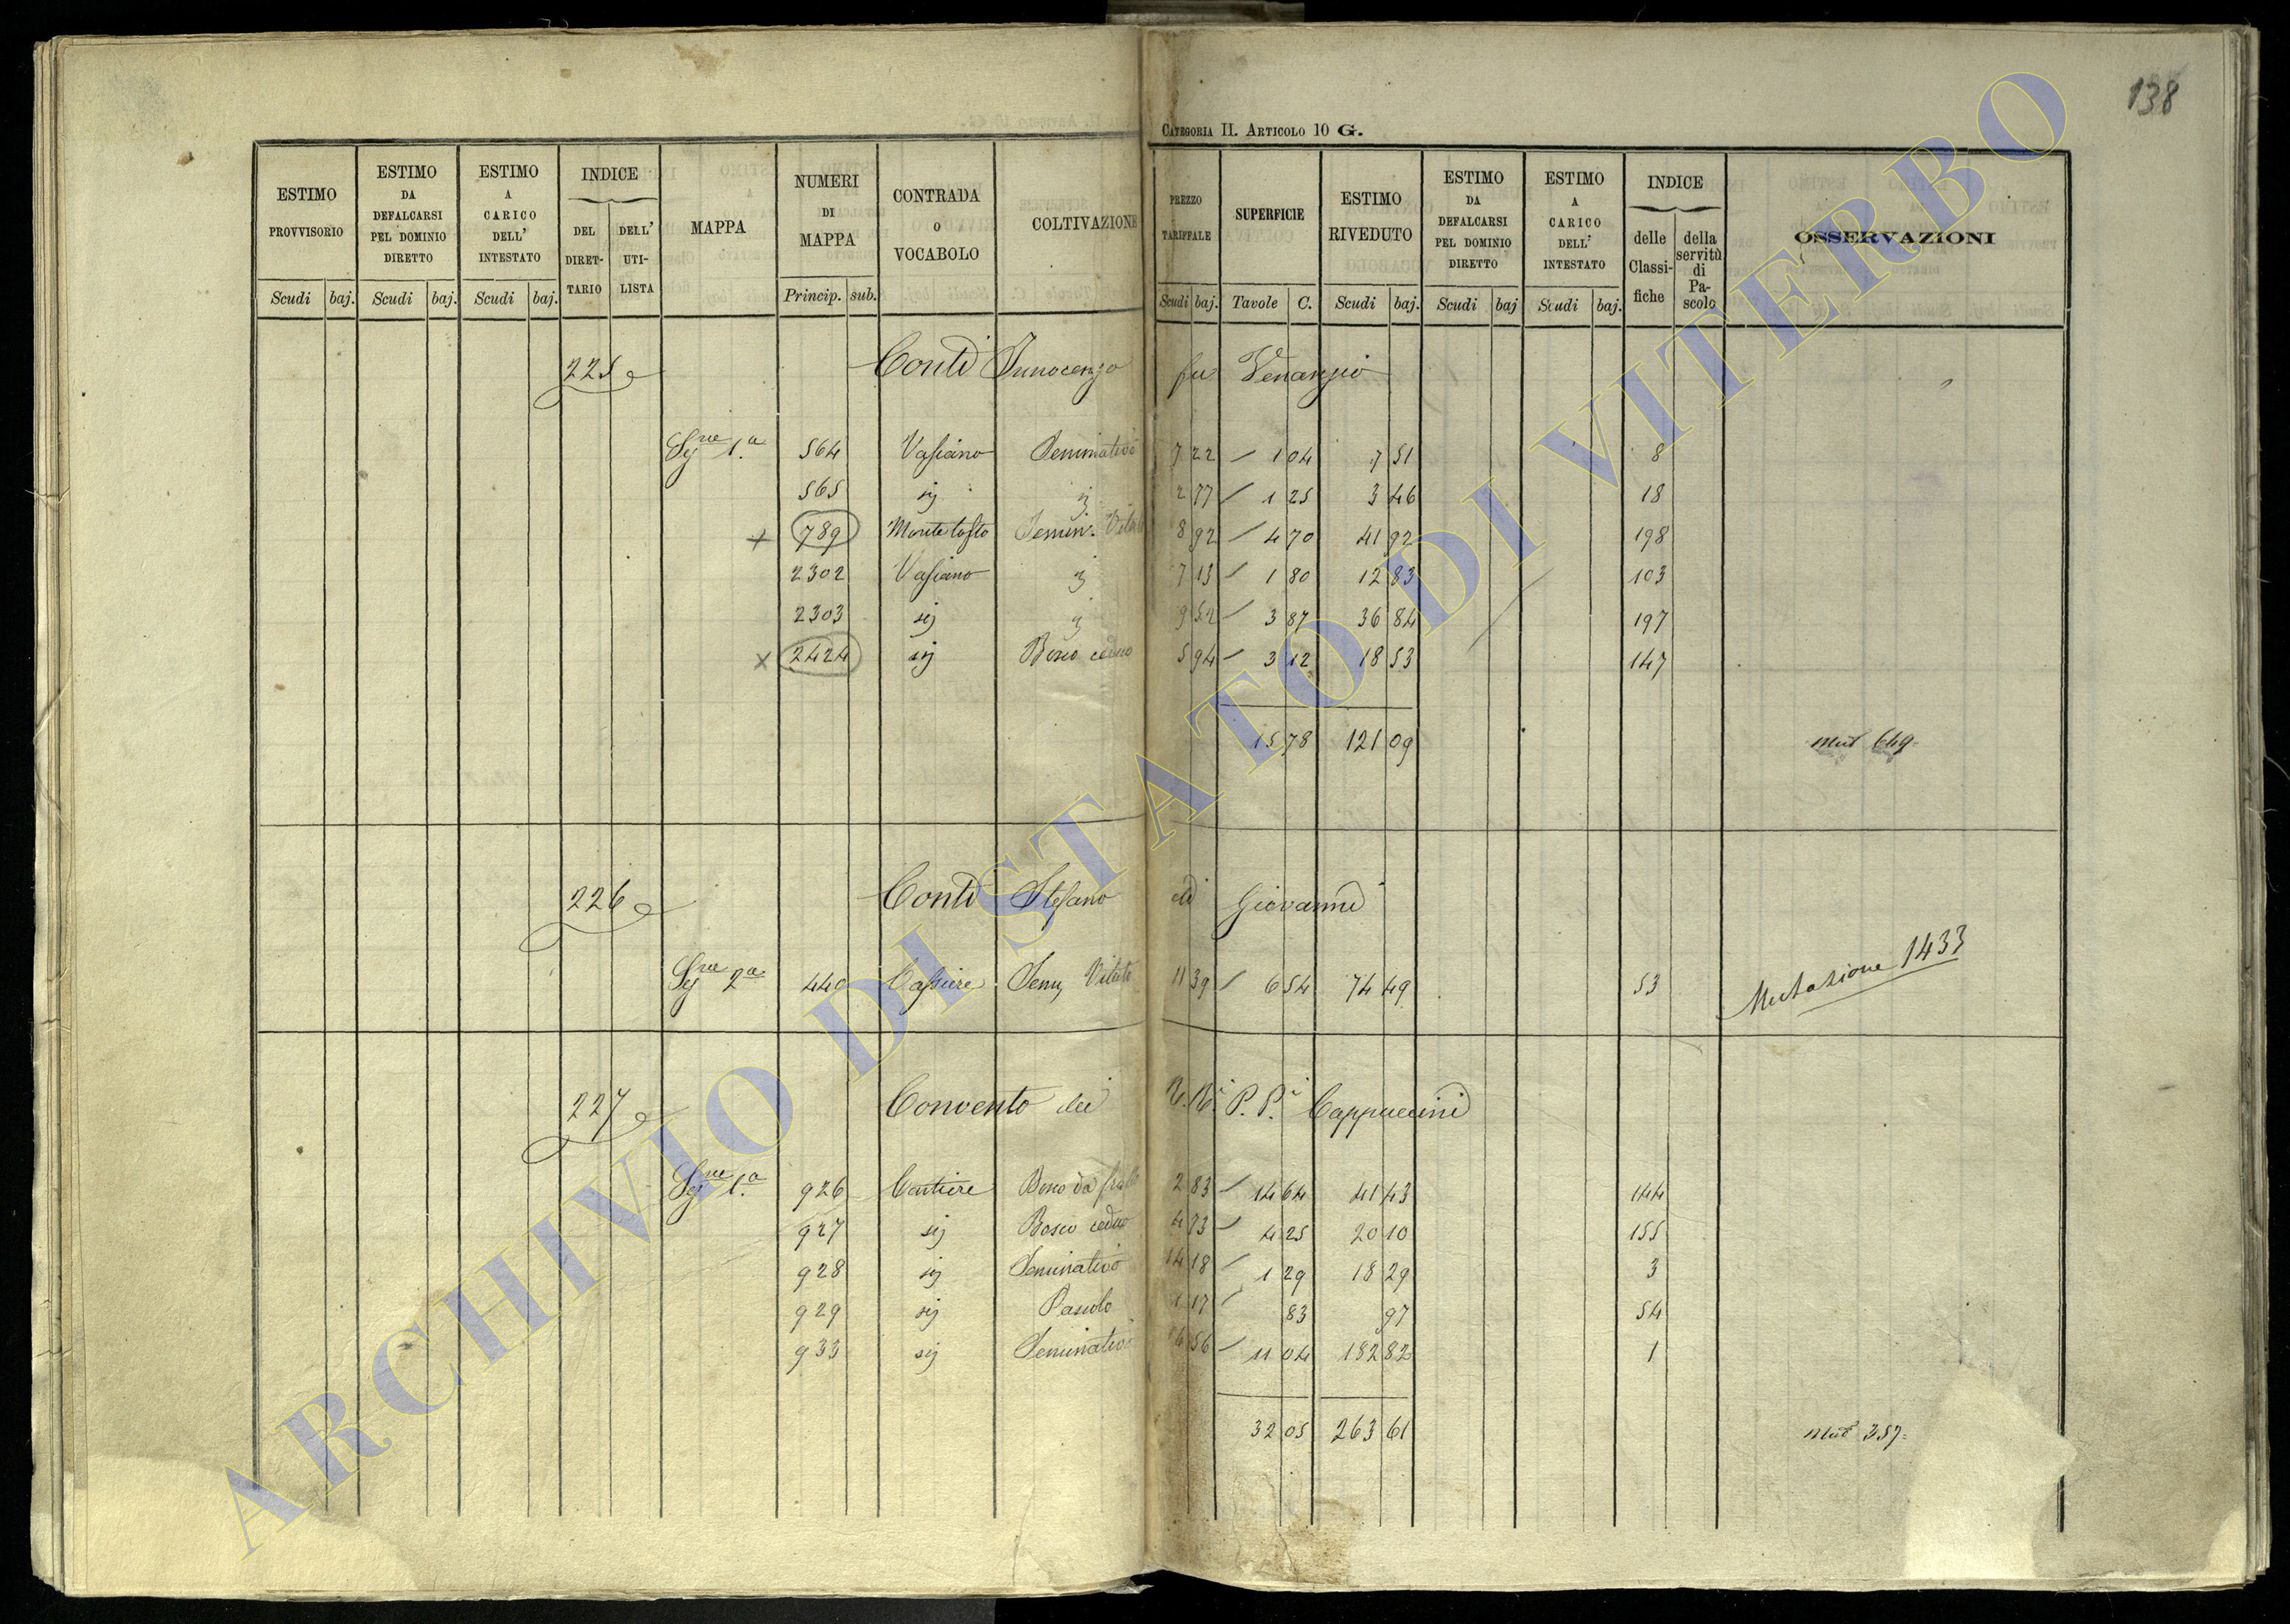 138
CATEGORIA II. ARTICOLO 10 G.
ESTIMO PROVVISORIO Scudi baj.
ESTIMO DA DEFALCARSI PEL DOMINIO DIRETTO Scudi baj.
ESTIMO A CARICO DELL' INTESTATO Scudi baj.
INDICE DEL DIRET-TARIO DELL' UTI-LISTA
MAPPA
NUMERI DI MAPPA Princip. sub.
CONTRADA O VOCABOLO
COLTIVAZIONE
PREZZO TARIFFALE Scudi baj.
SUPERFICIE Tavole C.
ESTIMO RIVEDUTO Scudi baj.
ESTIMO DA DEFALCARSI PEL DOMINIO DIRETTO Scudi baj
ESTIMO A CARICO DELL' INTESTATO Scudi baj.
INDICE delle Classi-fiche della servitù di Pa-scolo
OSSERVAZIONI
225 Conti Innocenzo fu Venanzio
Sez.ne 1.a 564 Vasiano Seminativo 7 22 1 04 7 51 8
565 sij 2 77 1 25 3 46 18
789 Monte tosto Semin. Vitato 8 92 4 70 41 92 198
2302 Vasiano 7 13 1 80 12 83 103
2303 sij 9 52 3 87 36 84 197
2424 sij Bosco ceduo 5 94 3 12 18 53 147
15 78 121 09 mut 649
226 Conti Stefano di Giovanni
Sez.ne 2a 440 Sem. Vitato 11 39 6 54 74 49 53 Mutazione 1433
227 Convento dei R.Ri P.Pi Cappuccini
Sez.ne 1.a 926 Bosco da frutto 2 83 14 64 41 43 144
927 sij Bosco ceduo 4 73 4 25 20 10 155
928 sij Seminativo 14 18 1 29 18 29 3
929 sij Pascolo 1 17 83 97 54
933 sij Seminativo 16 56 11 04 182 82 1
32 05 263 61 mut 357
ARCHIVIO DI STATO DI VITERBO